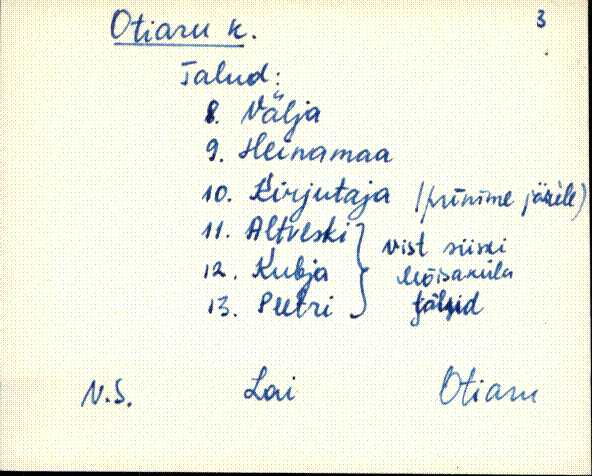 Otiaru k. 3
Talud:
8. Välja
9. Heinamaa
10. Kirjutaja (prinime järele)
11. Altveski } vist siiski
12. Kubja } Mõisaküla
13. Peetri } talud
N.S. Lai Otiaru